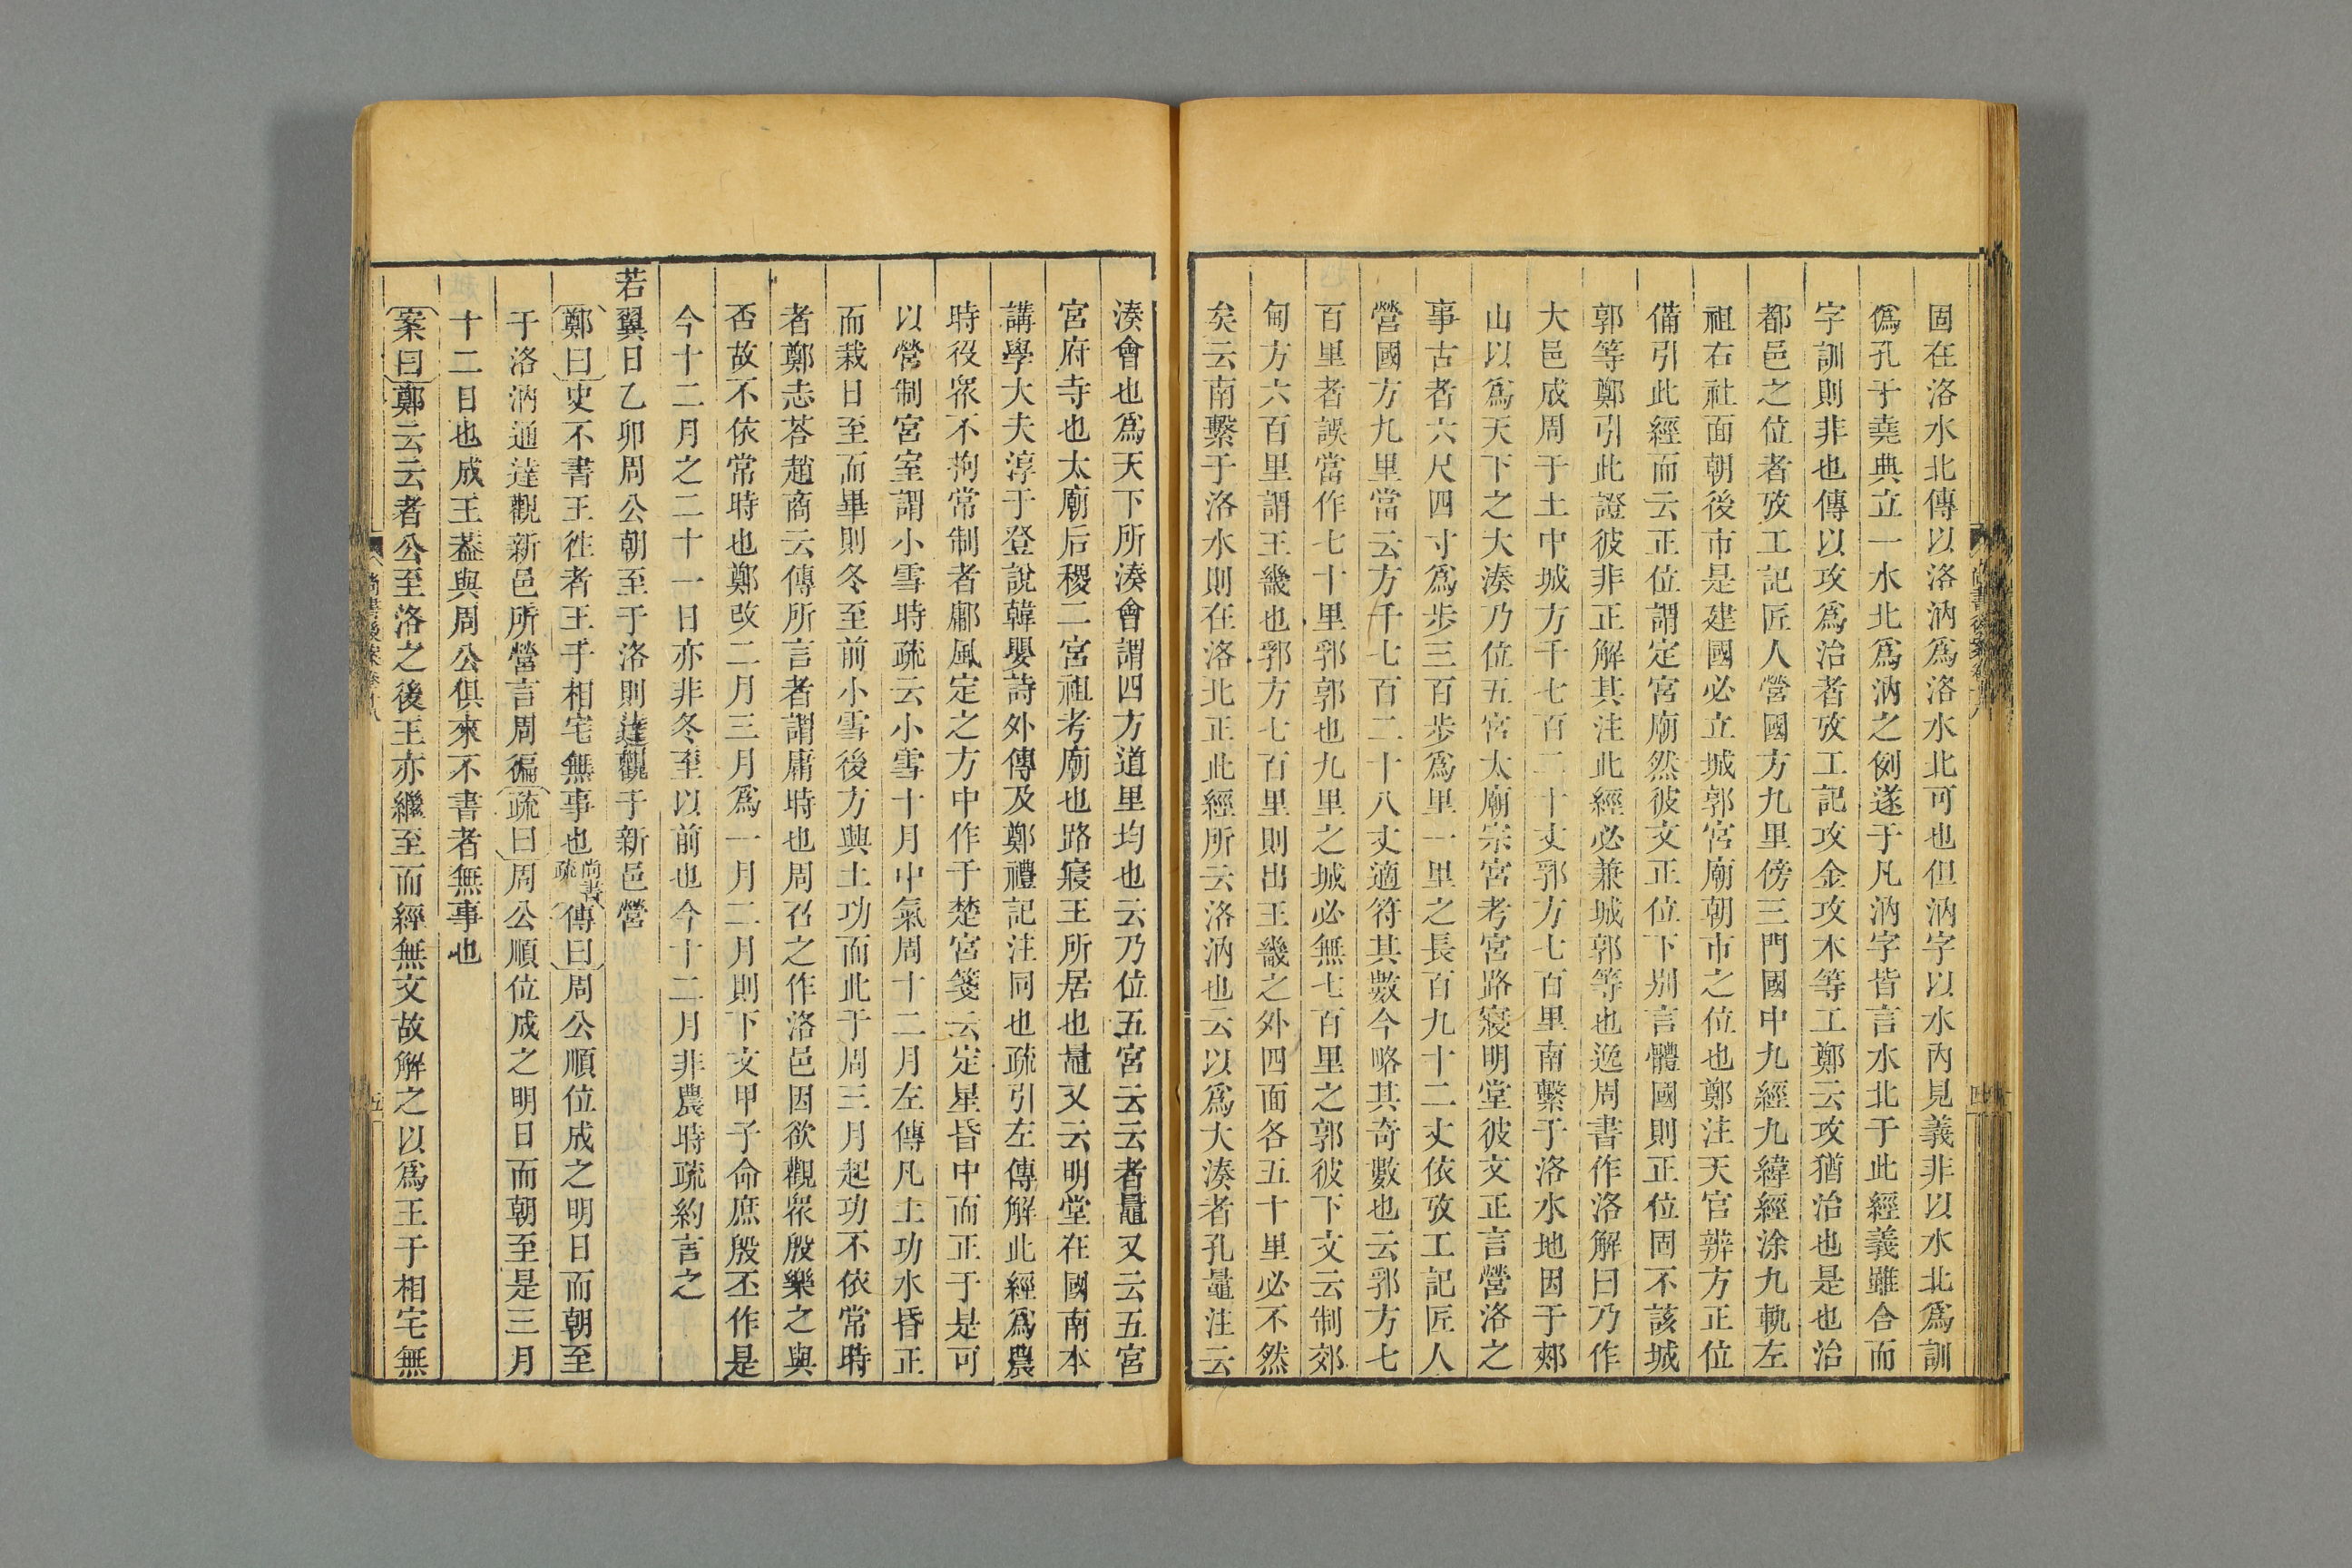 固在洛水北傳以洛汭爲洛水北可也但汭字以水內見義非以水北爲訓
僞孔于堯典立一水北爲汭之例遂于凡汭字皆言水北于此經義雖合而
字訓則非也傳以攻爲治者攷工記攻金攻木等工鄭云攻猶治也是也治
都邑之位者攷工記匠人營國方九里傍三門國中九經九緯經涂九軌左
祖右社面朝後市是建國必立城郭宮廟朝市之位也鄭注天官辨方正位
備引此經而云正位謂定宮廟然彼文正位下别言體國則正位固不該城
郭等鄭引此證彼非正解其注此經必兼城郭等也逸周書作洛解曰乃作
大邑成周于土中城方千七百二十丈郛方七百里南繫于洛水地因于郟
山以爲天下之大湊乃位五宮太廟宗宮考宮路寢明堂彼文正言營洛之
事古者六尺四寸爲步三百步爲里一里之長百九十二丈依攷工記匠人
營國方九里當云方千七百二十八丈適符其數今略其奇數也云郛方七
百里者誤當作七十里郛郭也九里之城必無七百里之郭彼下文云制郊
甸方六百里謂王畿也郛方七百里則出王畿之外四面各五十里必不然
矣云南繫于洛水則在洛北正此經所云洛汭也云以爲大湊者孔鼂注云
湊會也爲天下所湊會謂四方道里均也云乃位五宮云云者鼂又云五宮
宮府寺也太廟后稷二宮祖考廟也路寢王所居也鼂又云明堂在國南本
講學大夫淳于登說韓嬰詩外傳及鄭禮記注同也疏引左傳解此經爲農
時役衆不拘常制者鄘風定之方中作于楚宮箋云定星昏中而正于是可
以營制宮室謂小雪時疏云小雪十月中氣周十二月左傳凡土功水昏正
而栽日至而畢則冬至前小雪後方興土功而此于周三月起功不依常時
者鄭志荅趙商云傳所言者謂庸時也周召之作洛邑因欲觀衆殷樂之與
否故不依常時也鄭改二月三月爲一月二月則下文甲子命庶殷丕作是
今十二月之二十一日亦非冬至以前也今十二月非農時疏約言之
若翼日乙卯周公朝至于洛則達觀于新邑營
鄭曰史不書王徃者王于相宅無事也尚書疏傳曰周公順位成之明日而朝至
于洛汭通達觀新邑所營言周徧疏曰周公順位成之明日而朝至是三月
十二日也成王葢與周公俱來不書者無事也
案曰鄭云云者公至洛之後王亦繼至而經無文故解之以爲王于相宅無